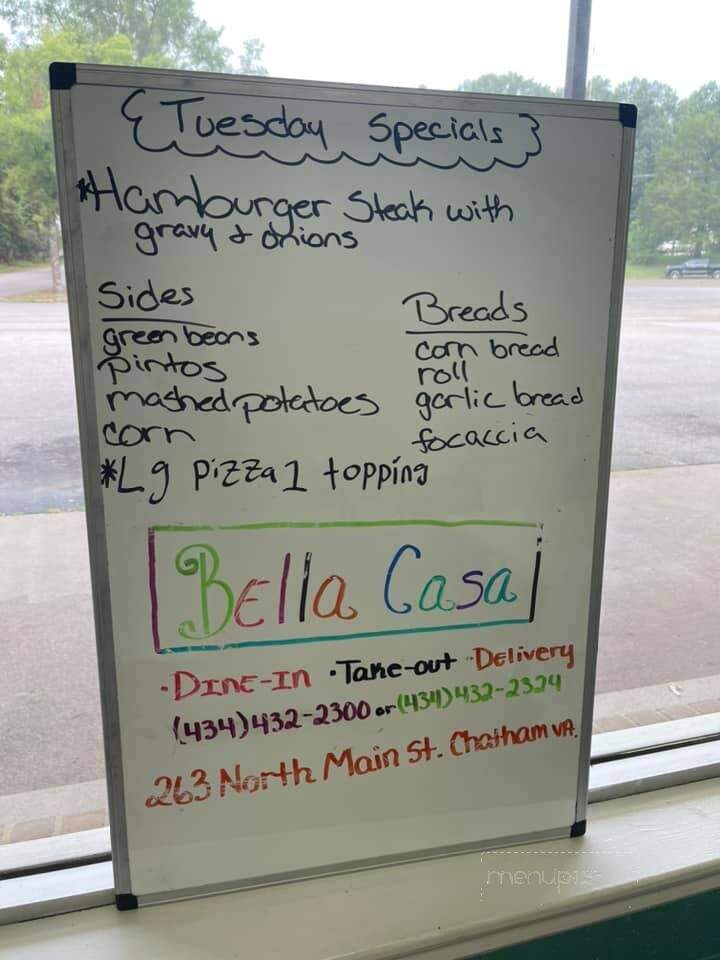 {Tuesday Specials}
*Hamburger Steak with
gravy & onions
Sides
green beans
pintos
mashed potatoes
corn
Breads
corn bread
roll
garlic bread
focaccia
*Lg Pizza 1 topping
Bella Casa
·Dine-In ·Take-out ·Delivery
(434)432-2300 or (434)432-2324
263 North Main St. Chatham VA.